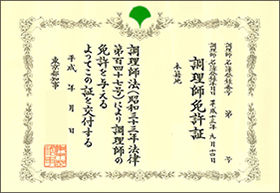 調理師名簿登録番号　第　　号
調理師名簿登録年月日　平成十三年九月四日
調理師免許証
本籍地
調理師法（昭和三十三年法律
第百四十七号）により調理師の
免許を与える
よってこの証を交付する
平成　年　月　日
東京都知事